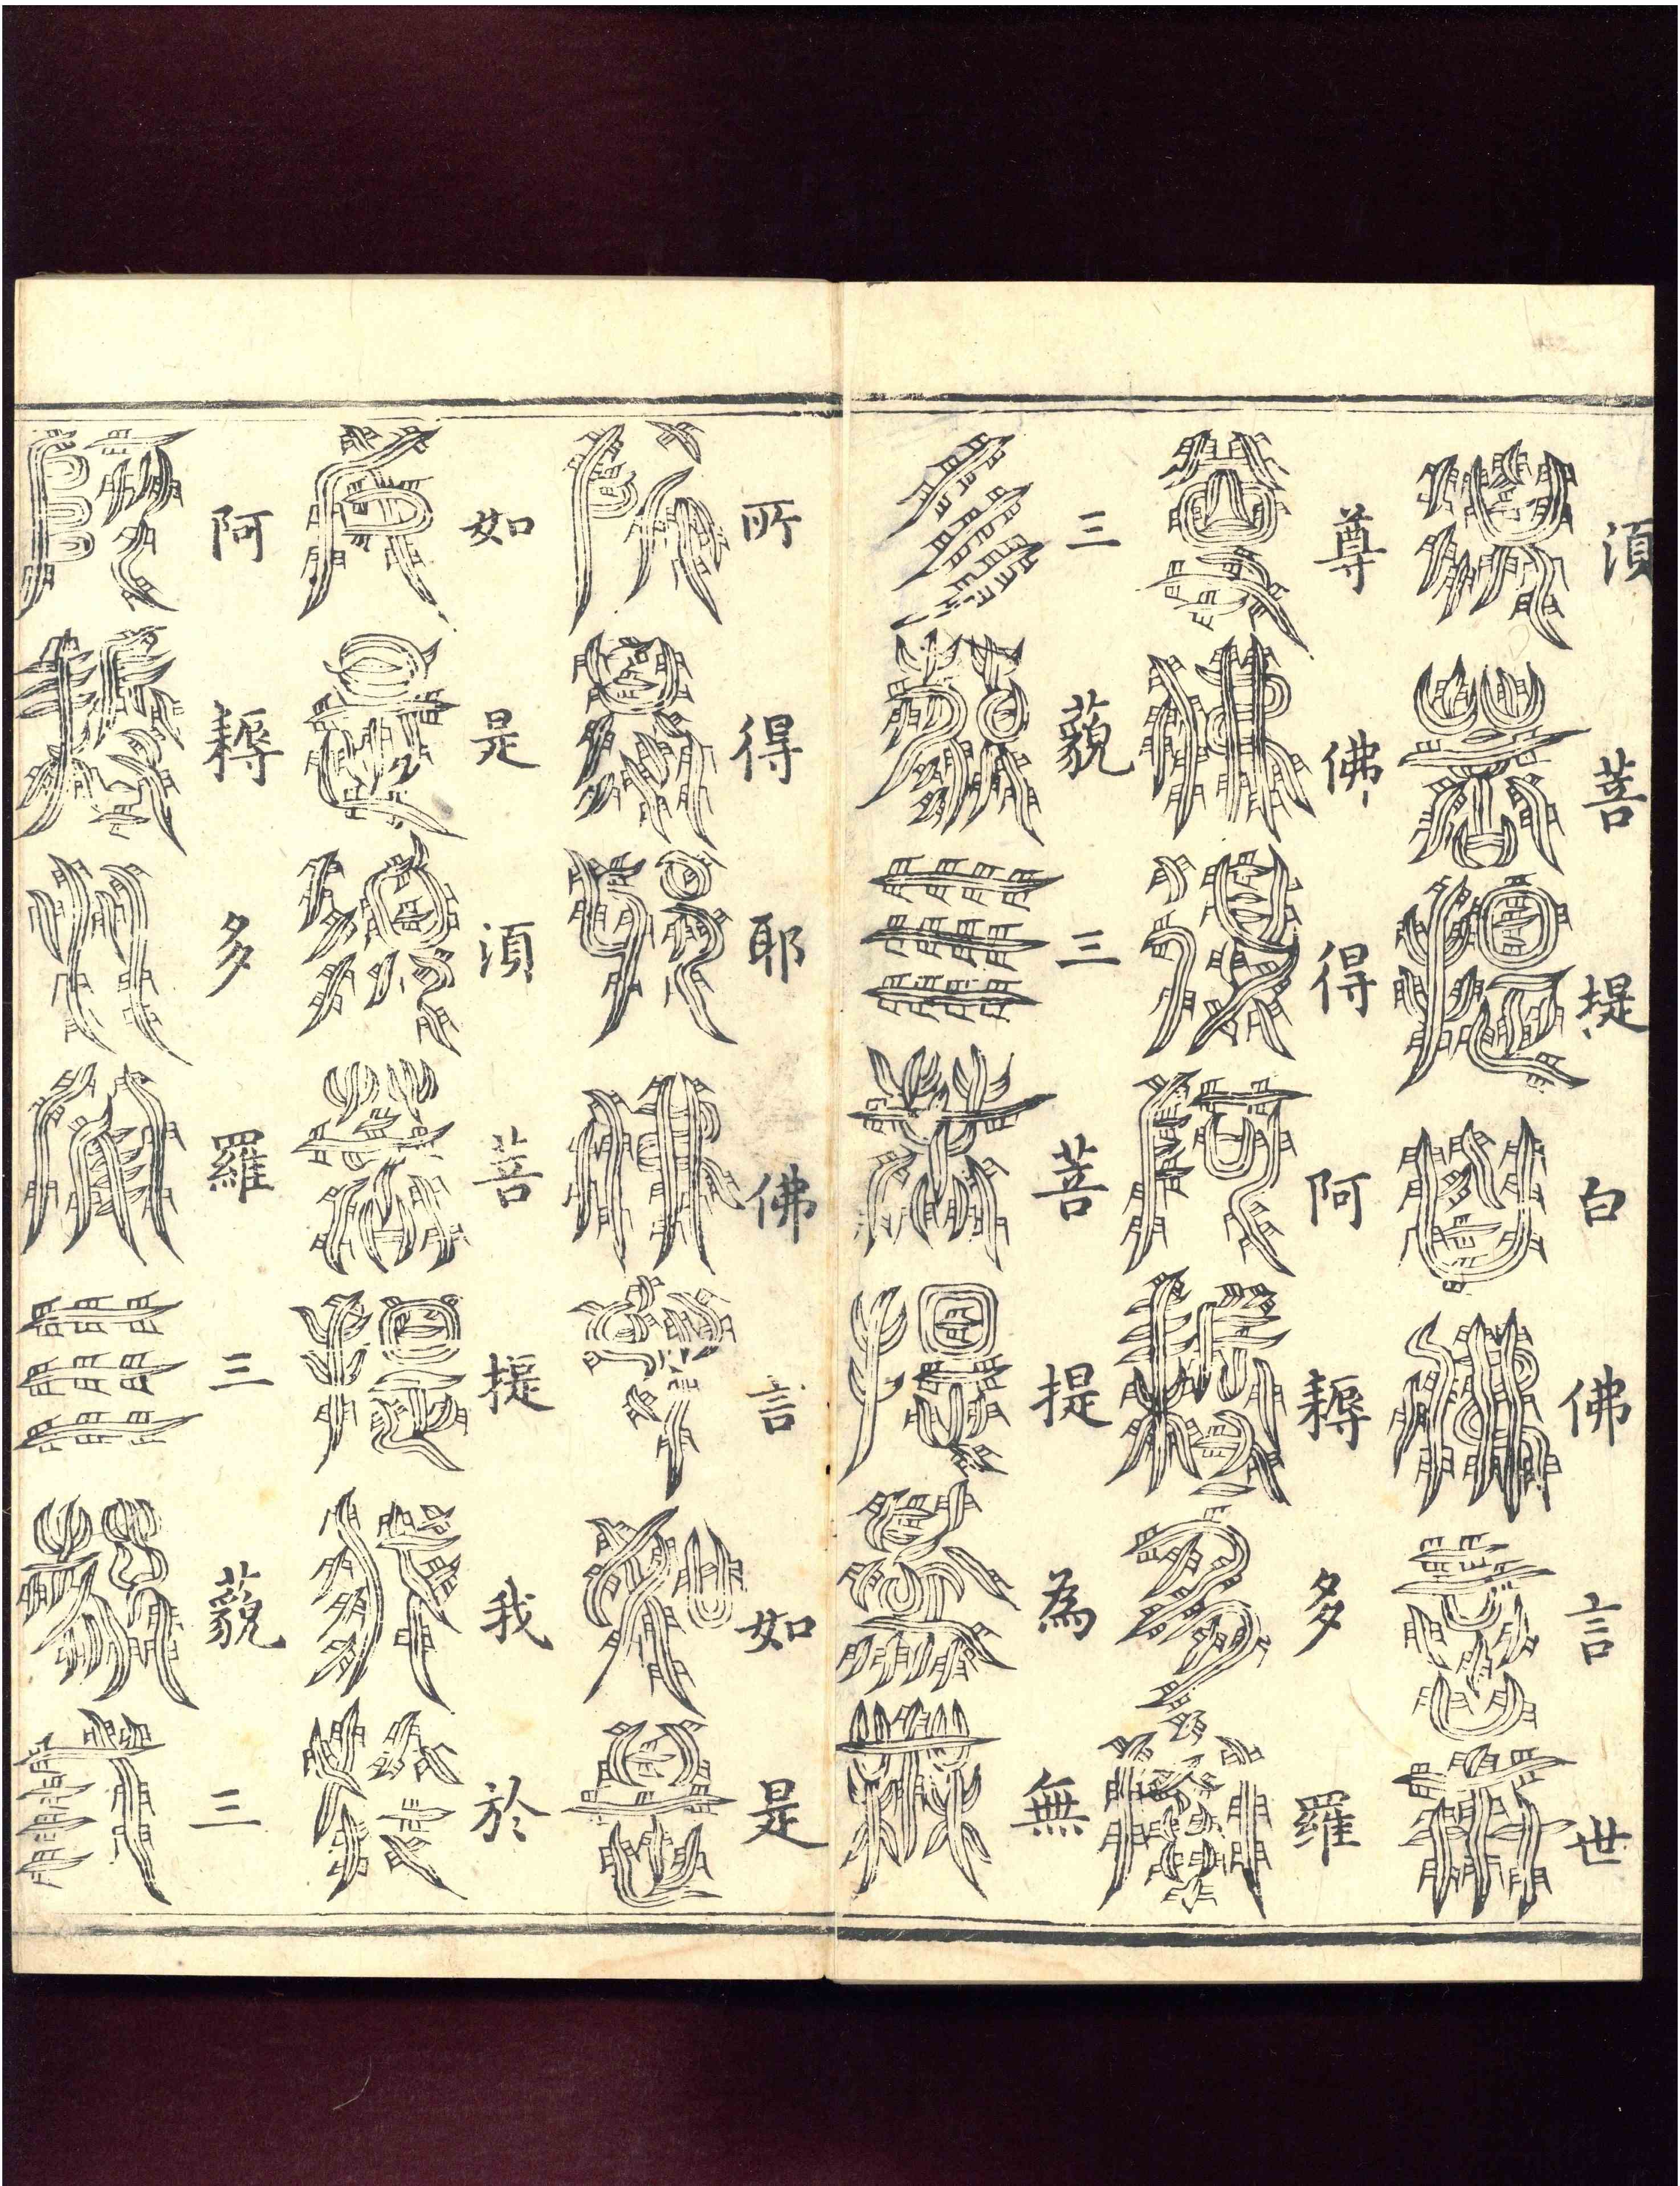 須菩提白佛言世
尊佛得阿耨多羅
三藐三菩提為無
所得耶佛言如是
如是須菩提我於
阿耨多羅三藐三